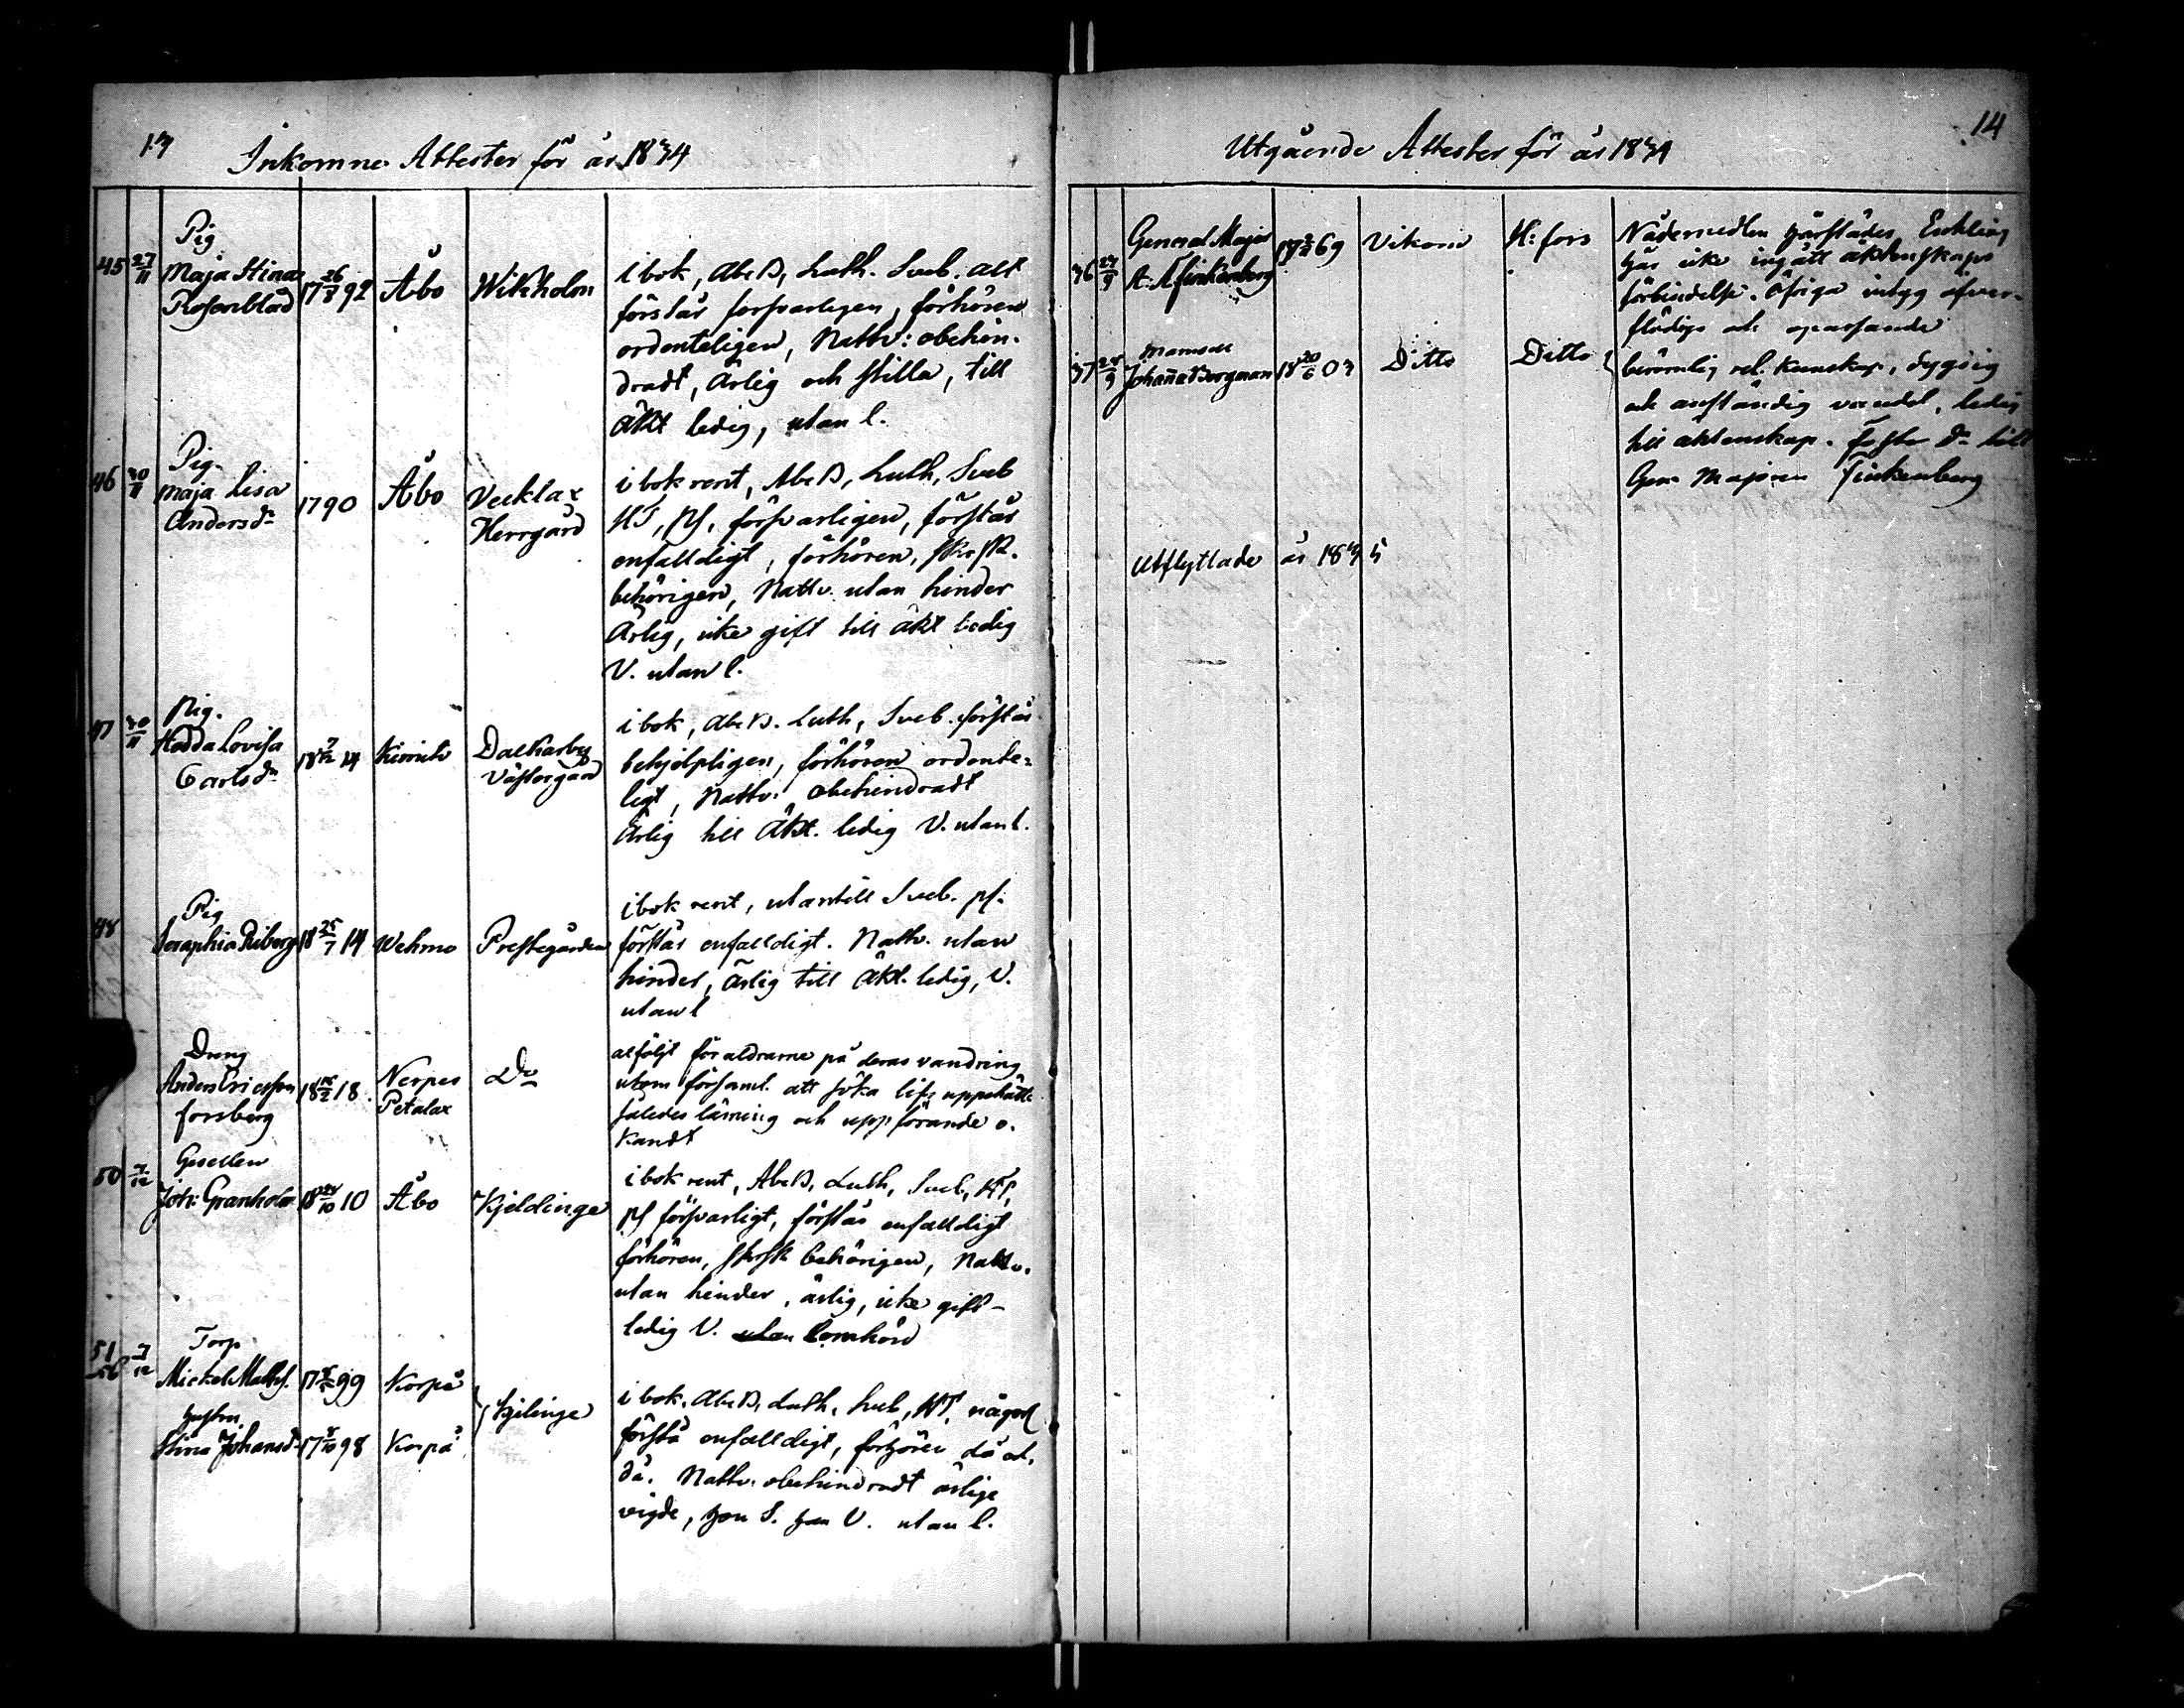 13
Inkomne Attester för år 1834
45 27/11
Pig
Maja Stina
Rosenblad
17 26/8 92
Åbo
Wikholm
i bok, Abc B, Luth. Sveb. alt
förstår försvarligen, förhören
ordenteligen, Nattv: obehin-
dradt, Ärlig och stilla, till
Äkt ledig, utan l.
46 30/11
Pig.
Maja Lisa
Andersdr
1790
Åbo
Vecklax
Herrgård
i bok rent, Abc B, Luth, Sveb
HT, ps, försvarligen, förstår
enfalldigt, förhören, skrsk.
behörigen, Nattv. utan hinder
Ärlig, icke gift till äkt ledig
V. utan l.
47 30/11
Pig.
Hedda Lovisa
Carlsdr
18 7/12 14
Kimito
Dalkarby
Västergård
i bok, Abc B. Luth, Sveb. förstår
behjelpligen, förhören ordente-
ligt, Nattv. obehindradt
Ärlig till Äkt. ledig V. utan l.
48
Pig
Seraphia Riberg
18 25/7 14
Wehmo
Prestegården
i bok rent, utantill Sveb. ps.
förstår enfalldigt. Nattv. utan
hinder, ärlig till äkt. ledig, V.
utan l
Dreng
Anders Ericsson
Forsberg
18 18
Nerpes
Petalax
Do
alföljt föraldrarne på deras vandring
utom församl. att söka lifs uppehälle
således läsning och uppförande o-
kandt
50 7/12
Gesellen
Joh: Granholm
18 10
Åbo
Kjeldinge
i bok rent, Abc B, Luth, Sveb, HT,
ps försvarligt, förstår enfalldigt
förhören, skrsk behörigen, Nattv.
utan hinder, ärlig, icke gift-
ledig V. utan lomhörd
51 7/12
Torp
Mickel Matts.
17 99
Korpo
hustru
Stina Johansdr
17 8/10 98
Korpo
Kjelinge
i bok, Abc B, Luth, Sveb, HT, något
förstå enfalldigt, förhören då och
då. Nattv. obehindradt ärlige
vigde, hon S. han V. utan l.
14
Utgående Attester för år 1834
36
General Major
A. Finkenberg
69
Vikom
H:fors
Nådemedlen härstädes, Enkling
har icke ingått äktenskaps
förbindelse. Öfriga intyg öfver-
flödige och opassande
37
Mamsell
Johanna Bergman
18 20/6 03
Ditto
Ditto
berömlig rel. kunskap, dygdig
och anständig vandel, ledig
till äktenskap. Foster dr till
Gen. Majoren Finkenberg
Utflyttade år 1835